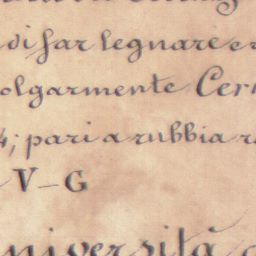 di far legnare e
olgarmente Cer
4; pari a rubbia
V–G
niversità